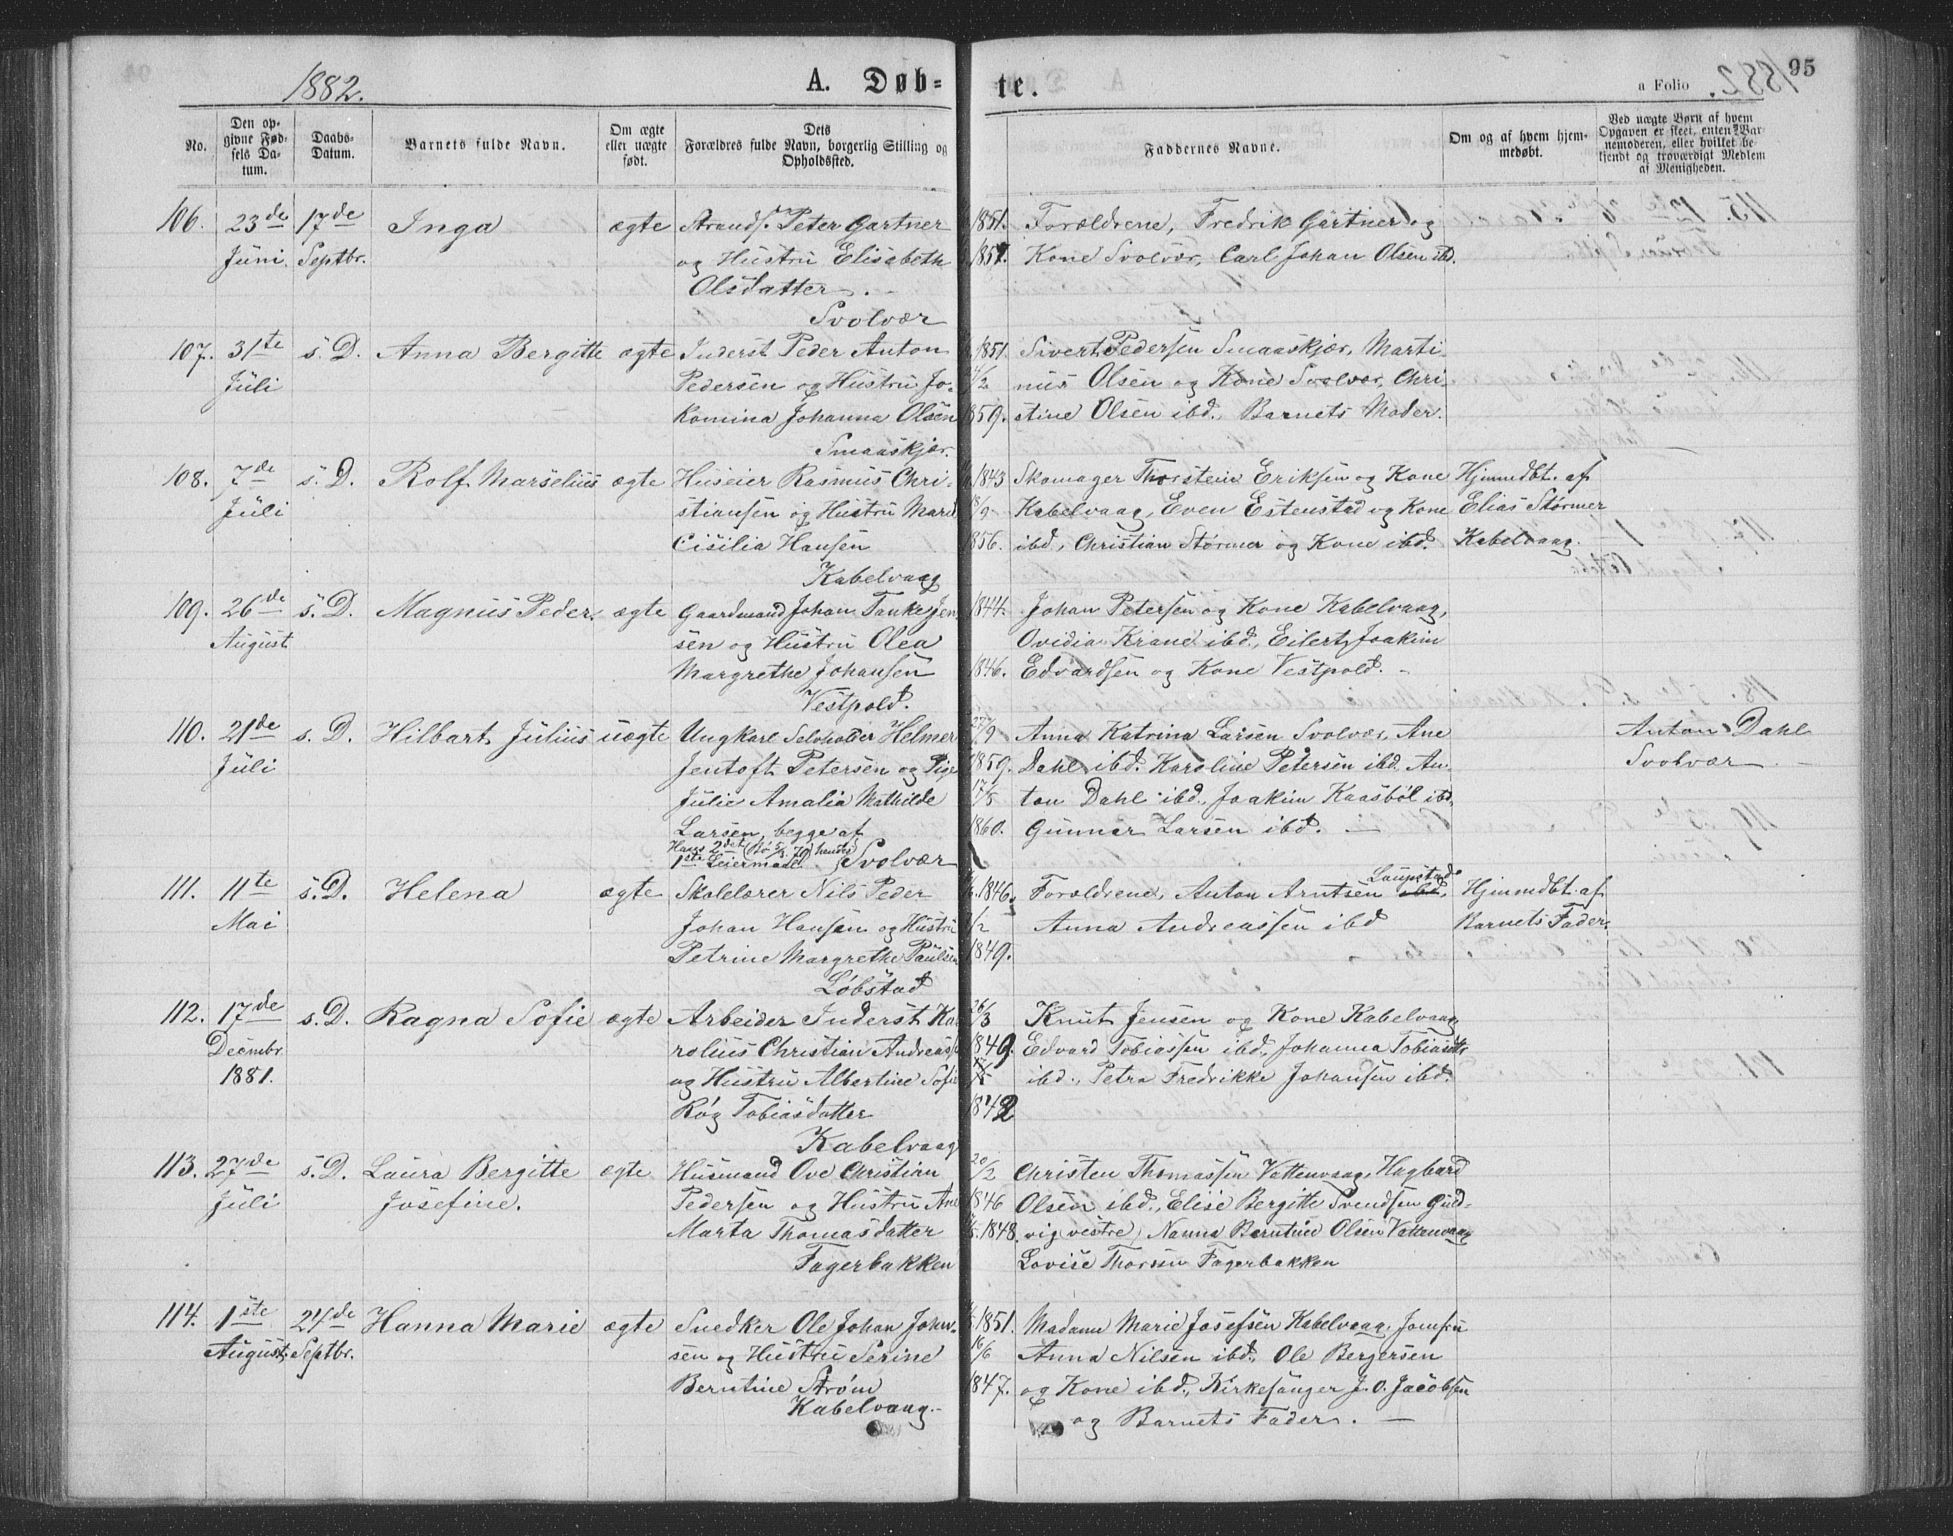 1882.
A. Døb-
te.
a Folio
95
No.
Den op-
givne Fød-
sels Da-
tum.
Daabs-
Datum.
Barnets fulde Navn.
Om ægte
eller uægte
født.
Dets
Forældres fulde Navn, borgerlig Stilling og
Opholdssted.
Faddernes Navne.
Om og af hvem hjem-
medøbt.
Ved uægte Børn af hvem
Opgaven er skeet, enten Bar-
nemoderen, eller hvilket be-
kjendt og troværdigt Medlem
af Menigheden.
106. 23de 17de Inga ægte Strands. Peter Gartner 1851. Forældrene, Fredrik Gartner og
Juni. Septbr. og Hustru Elisabeth 1857. Kone Svolvær, Carl Johan Olsen ibd.
Olsdatter.
Svolvær
107. 31te s. D. Anna Bergitte ægte Inderst Peder Anton 1851. Sivert Pedersen Smaaskjær, Marti-
Juli Pedersen og Hustru Jo- /2 nus Olsen og Kone Svolvær, Chri-
komina Johanna Olsen 1859. stine Olsen ibd., Barnets Moder.
Smaaskjær.
108. 7de s. D. Rolf Marselius ægte Huseier Rasmus Chri- 1843 Skomager Thorstein Eriksen og Kone Hjemmedbt. af
Juli stiansen og Hustru Marie /9 Kabelvaag, Even Estenstad og Kone Elias Størmer
Cisilia Hansen 1856. ibd, Christian Størmer og Kone ibd. Kabelvaag.
Kabelvaag
109. 26de s. D. Magnus Peder. ægte Gaardmand Johan Tanke Jen- 1844. Johan Petersen og Kone Kabelvaag,
August sen og Hustru Olea Ovidia Krane ibd., Eilert Joakim
Margrethe Johansen 1846. Edvardsen og Kone Vestpold.
Vestpold.
110. 21de s. D. Hilbart Julius uægte Ungkarl Selvholder Helmer 27/9 Anna Katrina Larsen Svolvær, Ane Anton Dahl
Juli Jentoft Petersen og Pige 1859. Dahl ibd. Karoline Petersen ibd. An- Svolvær
Julie Amalia Mathilde 17/5 ton Dahl ibd., Joakim Kaasbøl ibd,
Larsen, begge af 1860. Gunnar Larsen ibd.
Hans 2det hendes
1ste Leiermaal. Svolvær
111. 11te s. D. Helena ægte Skolelærer Nils Peder 1846. Forældrene, Anton Arntsen Laupstad Hjemmdbt. af
Mai Johan Hansen og Hustru /2 Anna Andreassen ibd Barnets Fader.
Petrine Margrethe Paulsen 1849.
Løbstad
112. 17de s. D. Ragna Sofie ægte Arbeider Inderst Ka- 26/3 Knut Jensen og Kone Kabelvaag
Decmbr rolius Christian Andreass 1849. Edvard Tobiassen ibd., Johanna Tobiasdtr
1881. og Hustru Albertine Sofie ibd., Petra Fredrikke Johansen ibd.
Røg Tobiasdatter 1842
Kabelvaag
113. 27de s. D. Laura Bergitte ægte Husmand Ove Christian 20/2 Christen Thomassen Vattenvaag, Hagbard
Juli Josefine. Pedersen og Hustru Ane 1846 Olsen ibd., Elise Bergitte Svendsen Guld-
Marta Thomasdatter 1848. vig (vestre) Nanna Berntine Olsen Vattenvaag
Fagerbakken Lovise Thorsen Fagerbakken
114. 1ste 24de Hanna Marie ægte Snedker Ole Johan John- 1851. Madam Marie Josefsen Kabelvaag, Jomfru
August. Septbr. sen og Hustru Serine 16/6 Anna Nilsen ibd., Ole Bergersen
Berntine Strøm 1847. og Kone ibd., Kirkesanger J. O. Jacobsen
Kabelvaag. og Barnets Fader.